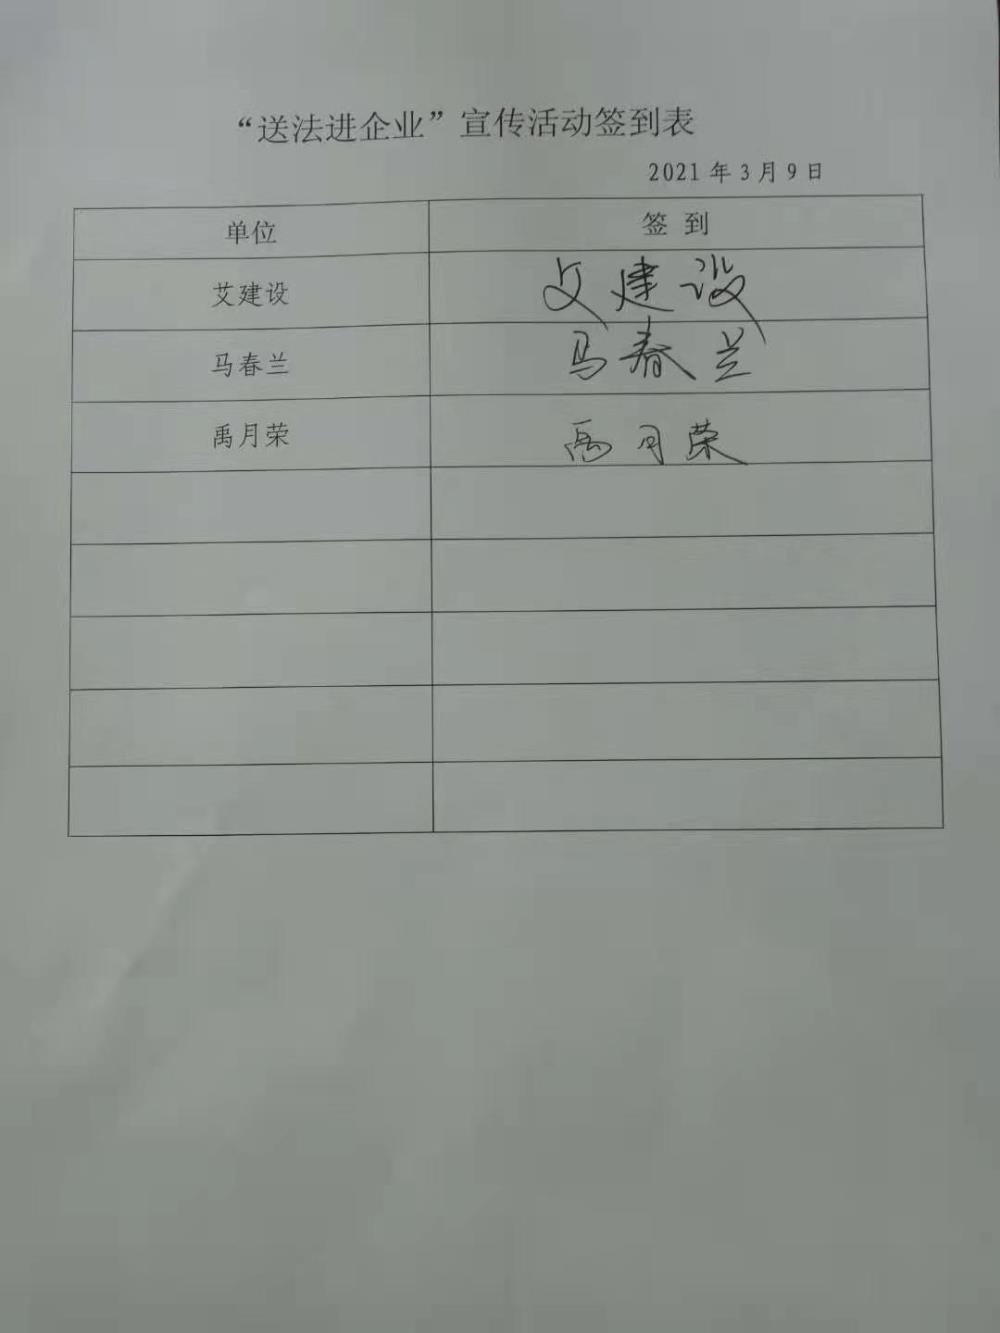 “送法进企业”宣传活动签到表
2021年3月9日
单位 签到
艾建设 艾建设
马春兰 马春兰
禹月荣 禹月荣